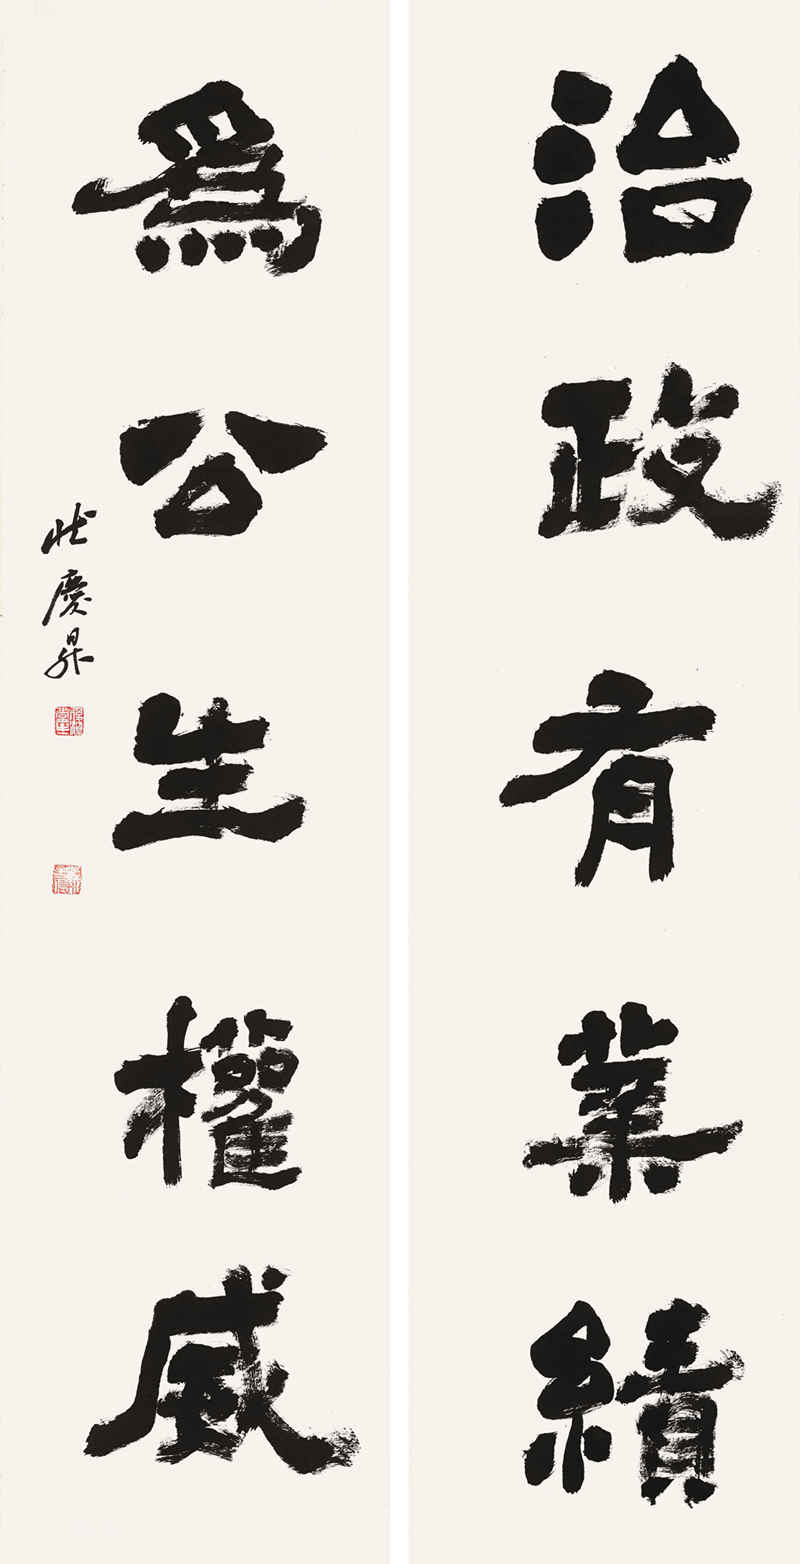 治政有業績
爲公生權威
慶昇